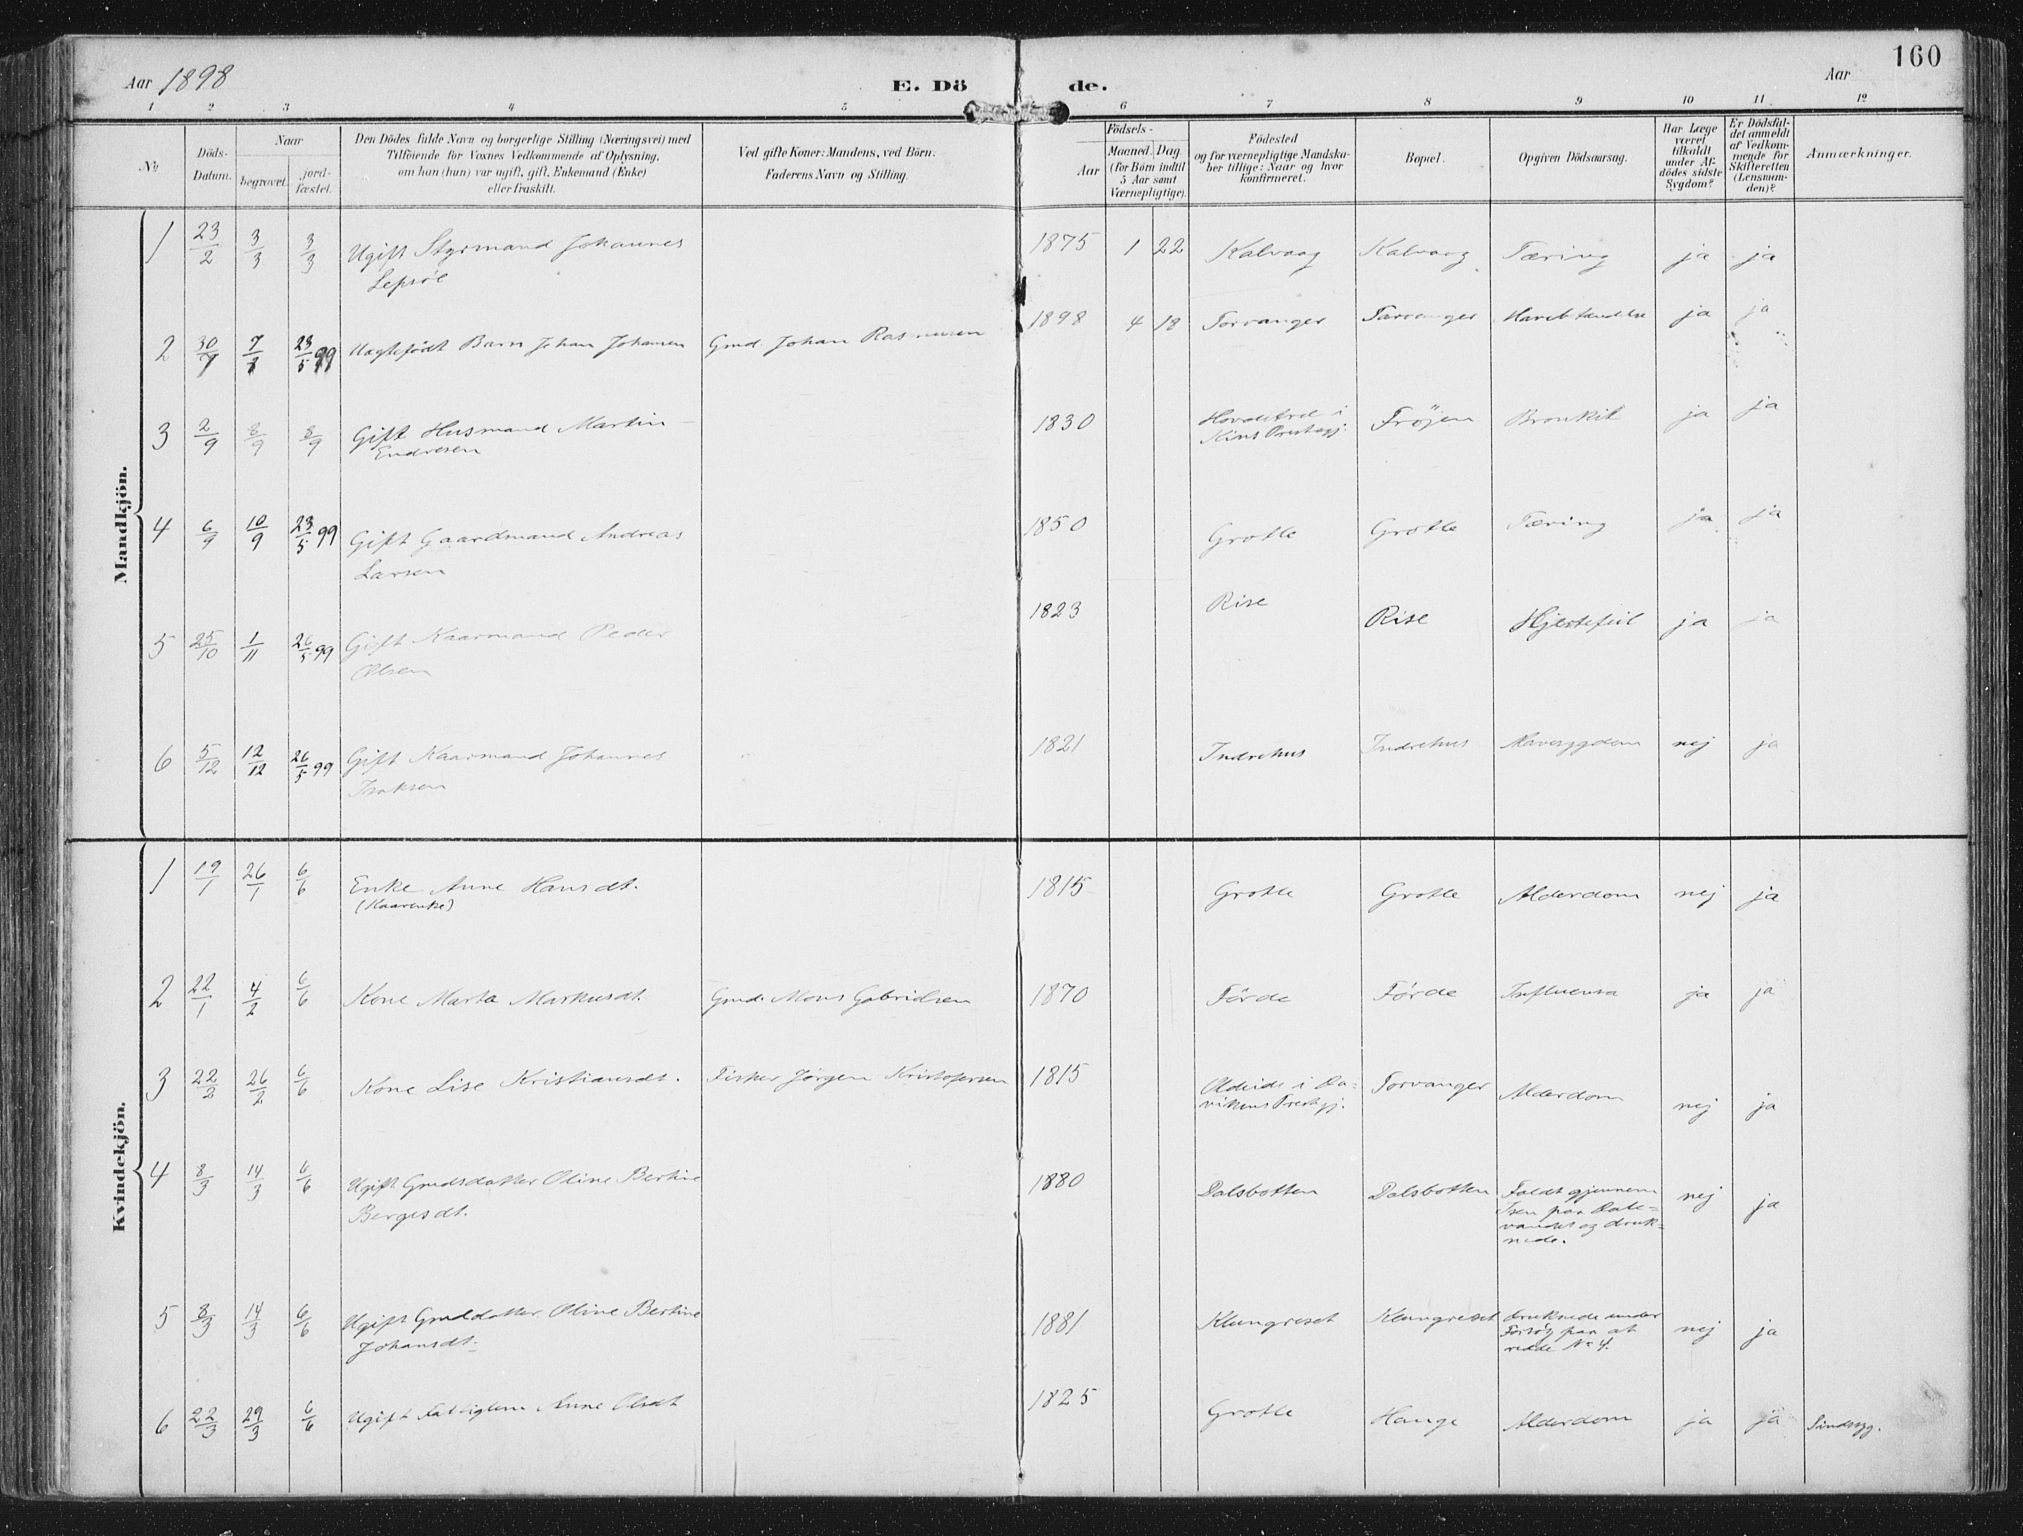 160
Aar 1898 E. Dö de. Aar
1 2 3 4 5 6 7 8 9 10 11 12
No
Döds-
Datum.
Naar
begravet. jord-
fæstet.
Den Dödes fulde Navn og borgerlige Stilling (Næringsvei) med
Tilföiende for Voxnes Vedkommende af Oplysning,
om han (hun) var ugift, gift, Enkemand (Enke)
eller fraskilt.
Ved gifte Koner: Mandens, ved Börn:
Faderens Navn og Stilling.
Födsels-
Aar Maaned. Dag
(for Börn indtil
5 Aar samt
Værnepligtige).
Födested
og for værnepligtige Mandska-
ber tillige: Naar og hvor
konfirmeret.
Bopæl.
Opgiven Dödsaarsag.
Har Læge
været
tilkaldt
under Af-
dödes sidste
Sygdom?
Er Dödsfal-
det anmeldt
af Vedkom-
mende for
Skifteretten
(Lensman-
den)?
Anmærkninger.
Mandkjön.
1 23/2 3/3 3/3 Ugift Styrmand Johannes 1875 1 22 Kalvaag Kalvaag Tæring ja ja
Lepsöe
2 30/7 7/8 23/5 99 Uægtefödt Barn Johan Johansen Gmd. Johan Rasmusen 1898 4 18 Torvanger Torvanger ja ja
3 2/9 8/9 8/9 Gift Husmand Martin 1830 i Fröjen Bronkit ja ja
Endresen Kins Prestegj.
4 6/9 10/9 23/5 99 Gift Gaardmand Andreas 1850 Grotle Grotle Tæring ja ja
Larsen
5 25/10 1/11 26/5 99 Gift Kaarmand Peder 1823 Rise Rise Hjertefeil ja ja
Olsen
6 5/12 12/12 26/5 99 Gift Kaarmand Johannes 1821 Indrehus Indrehus Mavesygdom nej ja
Isaksen
Kvindekjön.
1 19/1 26/1 6/6 Enke Anne Hansdt. 1815 Grotle Grotle Alderdom nej ja
(Kaarenke)
2 22/1 4/2 6/6 Kone Marta Markusdt. Gmd. Mons Gabrielsen 1870 Förde Förde Influensa ja ja
3 22/2 26/2 6/6 Kone Lise Kristiansdt. Fisker Jörgen Kristofersen 1815 Oldeide i Da- Torvanger Alderdom nej ja
vikens Prestegj.
4 8/3 14/3 6/6 Ugift Gmdsdatter Oline Bertine 1880 Dalsbotten Dalsbotten Faldt gjennem nej ja
Bergesdt. Isen paa Dale-
vandet og druk-
nede.
5 8/3 14/3 6/6 Ugift Gmddatter Oline Bertine 1881 Klungreset Klungreset druknede under nej ja
Johansdt. Forsög paa at
redde No 4.
6 22/3 29/3 6/6 Ugift Fattiglem Anne Olsdt 1825 Grotle Hauge Alderdom ja ja Sindssyg.